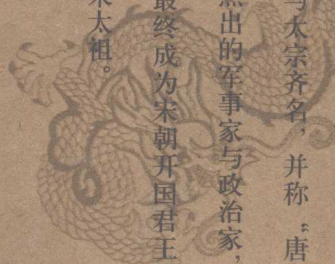 与太宗齐名，并称“唐
杰出的军事家与政治家，
最终成为宋朝开国君王
宋太祖。